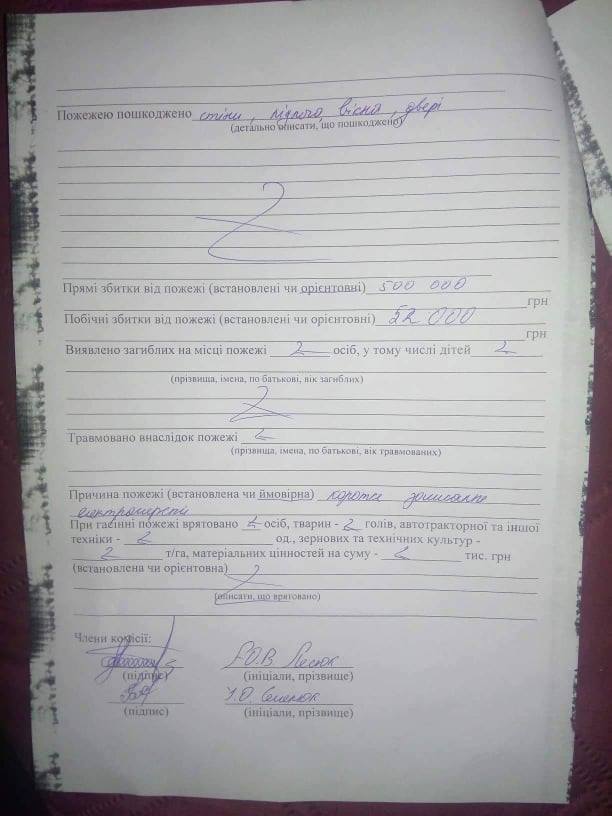 Пожежею пошкоджено стіни, підлога, вікна, двері
(детально описати, що пошкоджено)
Прямі збитки від пожежі (встановлені чи орієнтовні) 500 000
грн
Побічні збитки від пожежі (встановлені чи орієнтовні) 52 000
грн
Виявлено загиблих на місці пожежі осіб, у тому числі дітей
(прізвища, імена, по батькові, вік загиблих)
Травмовано внаслідок пожежі
(прізвища, імена, по батькові, вік травмованих)
Причина пожежі (встановлена чи ймовірна) коротке замикання
електромережі
При гасінні пожежі врятовано осіб, тварин - голів, автотракторної та іншої
техніки - од., зернових та технічних культур -
т/га, матеріальних цінностей на суму - тис. грн
(встановлена чи орієнтовна)
(описати, що врятовано)
Члени комісії:
Ю.В Лесюк
(підпис) (ініціали, прізвище)
(підпис) (ініціали, прізвище)